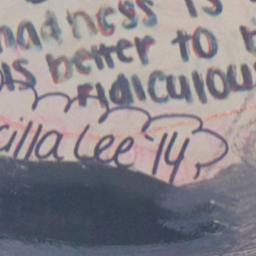 madness is
better to
ridiculous
cilla Lee '14